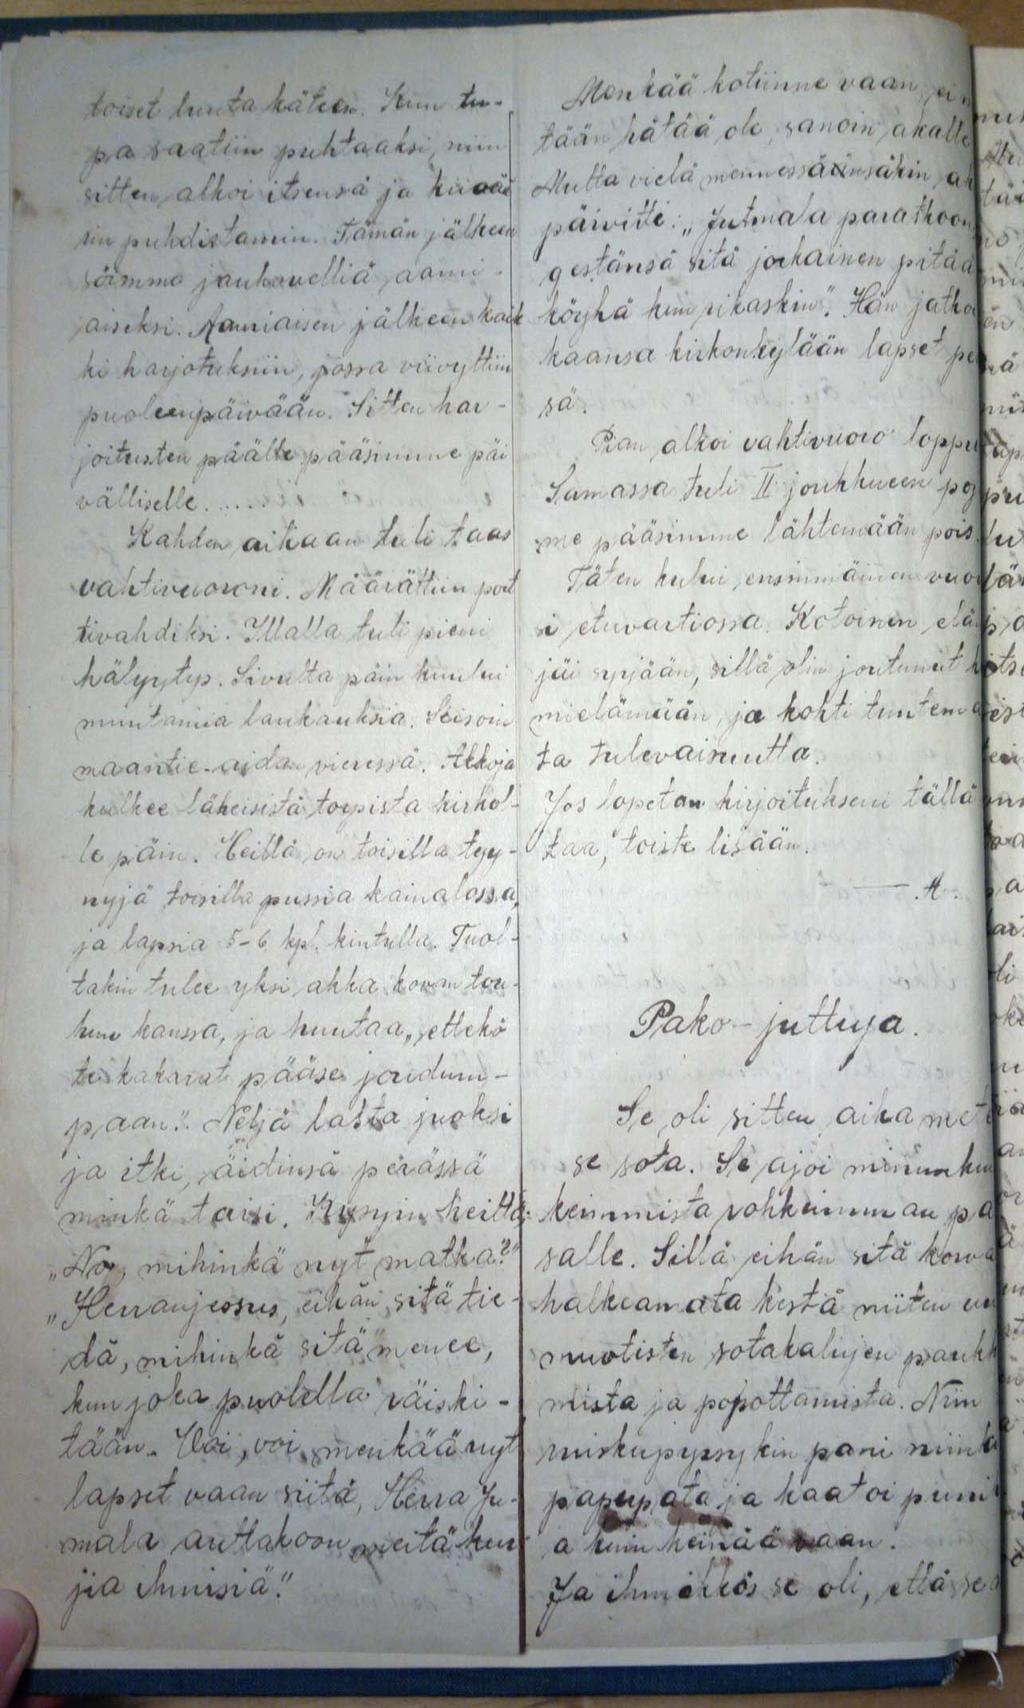 toiset luuta käteen. Kun tu-
pa saatiin puhtaaksi, niin
sitten alkoi itsensä ja kivää
rin puhdistamin. Tämän jälkeen
söimme jauhovelliä aami-
aiseksi. Aamiaisen jälkeen kaik
ki harjotuksiin, jossa viivyttiin
puoleenpäivään. Sitten har-
joitusten päälle pääsimme päi
välliselle.....
Kahden aikaan tuli taas
vahtivuoroni. Määrättiin port
tivahdiksi. Illalla tuli pieni
hälyytys. Sivulta päin kuului
muutamia laukauksia. Seisoin
maantie-aidan vieressä. Akkoja
kulkee läheisistä torpista kirkol-
le päin. Heillä on toisilla tyy-
nyjä toisilla pussia kainalossa,
ja lapsia 5-6 kpl. kintulla. Tuol-
takin tulee yksi akka kovan tou-
hun kanssa, ja huutaa, „ettekö
te kakarat pääse joudum-
paan". Neljä lasta juoksi
ja itki äidinsä perässä
minkä taisi. Kysyin heiltä:
„No, mihinkä nyt matka?"
„Herranjessus, eihän sitä tie-
dä, mihinkä sitä menee,
kun joka puolella väiski-
tään. Voi, voi, menkää nyt
lapset vaan siitä, Herra Ju-
mala auttakoon meitä kur
jia ihmisiä."
Menkää kotiinne vaan, ei
tään hätää ole, sanoin akalle
Mutta vielä mennessäänsäkin
päivitti: „Jutmala paratkoon
gestänsä sitä jorkainen pitää
köyhä kun rikaskin". Hän jatkoi
kaansa kirkonkylään lapset pe
sä.
Pian alkoi vahtivuoro loppu
Samassa tuli II joukkueen po
me pääsimme lähtemään pois.
Täten kului ensimmäinen vuo
i etuvartiossa. Kotoinen elä
jäi syrjään, sillä olin joutunut
mielämään, ja kohti tuntema
ta tulevaisuutta.
Jos lopetan kirjoitukseni tällä
taa, toiste lisään.
— A.
Pako-juttuja.
Se oli sitten aika met
se sota. Se ajoi minunkin
keimmista pohkeimman pa
salle. Sillä eihän sitä korva
halkeamata kestä niiten
muotisten sotakalujen paukk
mista ja popottamista. Niin
ruiskupyssykin pani niin
papupata ja kaatoi puni
a kuin heinää vaan.
Ja ihmekkös se oli, että se